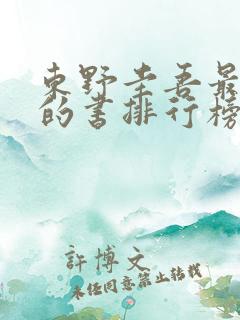 東野圭吾最
的書排行榜
許博文
未经同意禁止转载